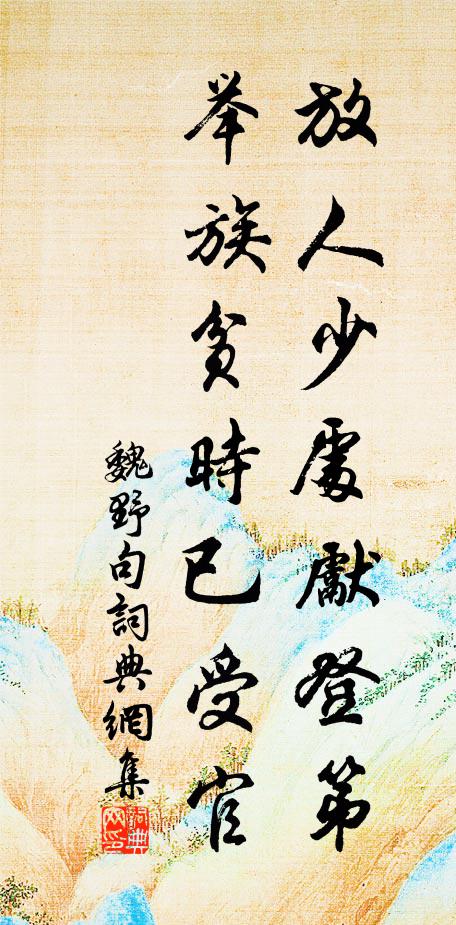 放人少處獻登第
举族貧時已受官
魏野句詞典網集
詞典網印